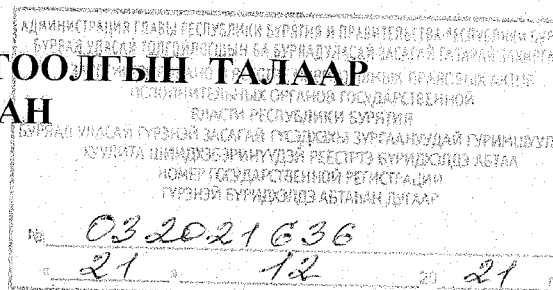 АДМИНИСТРАЦИЯ ГЛАВЫ РЕСПУБЛИКИ БУРЯТИЯ И ПРАВИТЕЛЬСТВА РЕСПУБЛИКИ БУР
БУРЯАД УЛАСАЙ ТОЛГОЙЛОГШЫН БА БУРЯАД УЛАСАЙ ЗАСАГАЙ ГАЗАРАЙ ЗАХИРГА
ГООЛГЫН ТАЛААР
ПРАВОВЫХ АКТОВ
АН
ИСПОЛНИТЕЛЬНЫХ ОРГАНОВ ГОСУДАРСТВЕННОЙ
ВЛАСТИ РЕСПУБЛИКИ БУРЯТИЯ
БУРЯАД УЛАСАЙ ГҮРЭНЭЙ ЗАСАГАЙ ГҮСЭДХЭХЫ ЗУРГААНУУДАЙ ГУРИМШУУЛ
ХУУЛИТА ШИИДХЭБЭРИНҮҮДЭЙ РЕЕСТРТЭ БҮРИДХЭЛДЭ АБТАА
НОМЕР ГОСУДАРСТВЕННОЙ РЕГИСТРАЦИИ
ГҮРЭНЭЙ БҮРИДХЭЛДЭ АБТАҺАН ДУГААР
№ 032021636
« 21 » 12 20 21 г